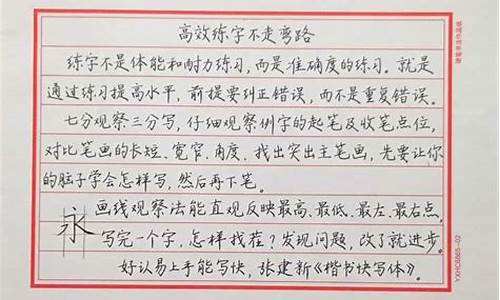 高效练字不走弯路
练字不是体能和耐力练习，而是准确度的练习。就是
通过练习提高水平，前提要纠正错误，而不是重复错误。
七分观察三分写，仔细观察例字的起笔及收笔点位，
对比笔画的长短、宽窄、角度、找出突出主笔画，先要让你
的脑子学会怎样写，然后再下笔。
永
画线观察法能直观反映最高、最低、最左、最右点。
写完一个字，怎样找茬？发现问题，改了就进步。
好认易上手能写快，张建新《楷书快写体》。
硬笔书法作品纸
YXHC6865-02